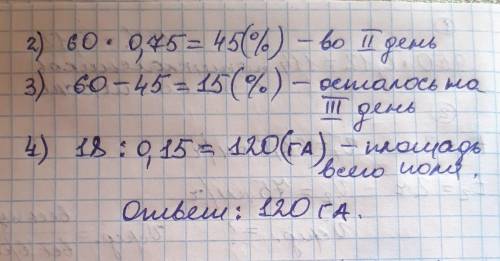 2) 60 · 0,75 = 45(%) – во II день
3) 60 – 45 = 15(%) – осталось на
III день
4) 18 : 0,15 = 120(га) – площадь
всего поля.
Ответ: 120 га.